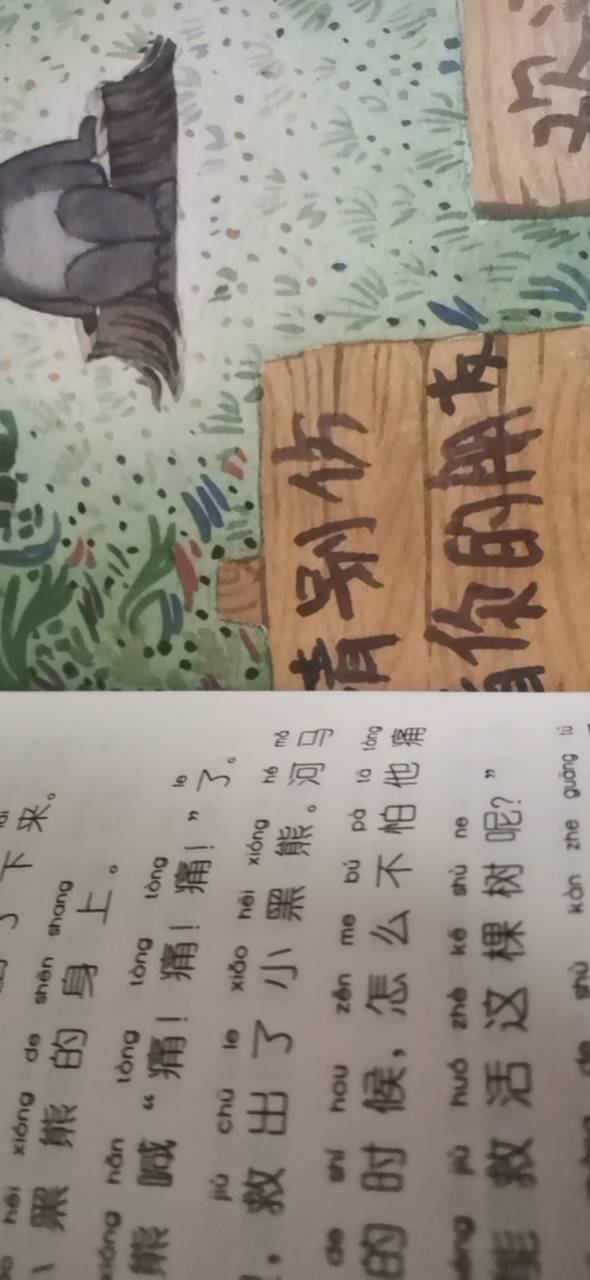 下来。
hēi xióng de shēn shang
黑熊的身上。
xióng hǎn tòng tòng tòng le
熊喊“痛！痛！痛！”了。
jiù chū le xiǎo hēi xióng hé mǎ
，救出了小黑熊。河马
de shí hou zěn me bú pà tā tòng
的时候，怎么不怕他痛
néng jiù huó zhè kē shù ne
能救活这棵树呢？”
de shù kàn zhe guāng tū
请别伤
你的朋友